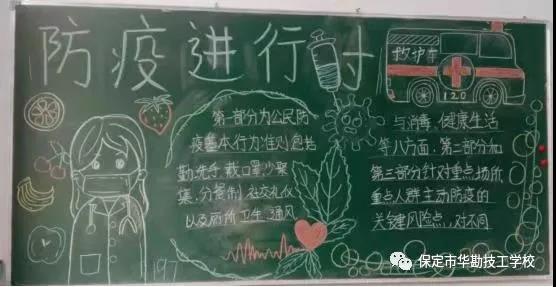 防疫进行时
救护车
120
第一部分为公民防
疫基本行为准则包括
勤洗手、戴口罩、少聚
集、分餐制、社交礼仪
以及厕所卫生、通风
与消毒、健康生活
等八方面.第二部分和
第三部分针对重点场所
重点人群主动防疫的
关键风险点,对不同
197
保定市华勘技工学校